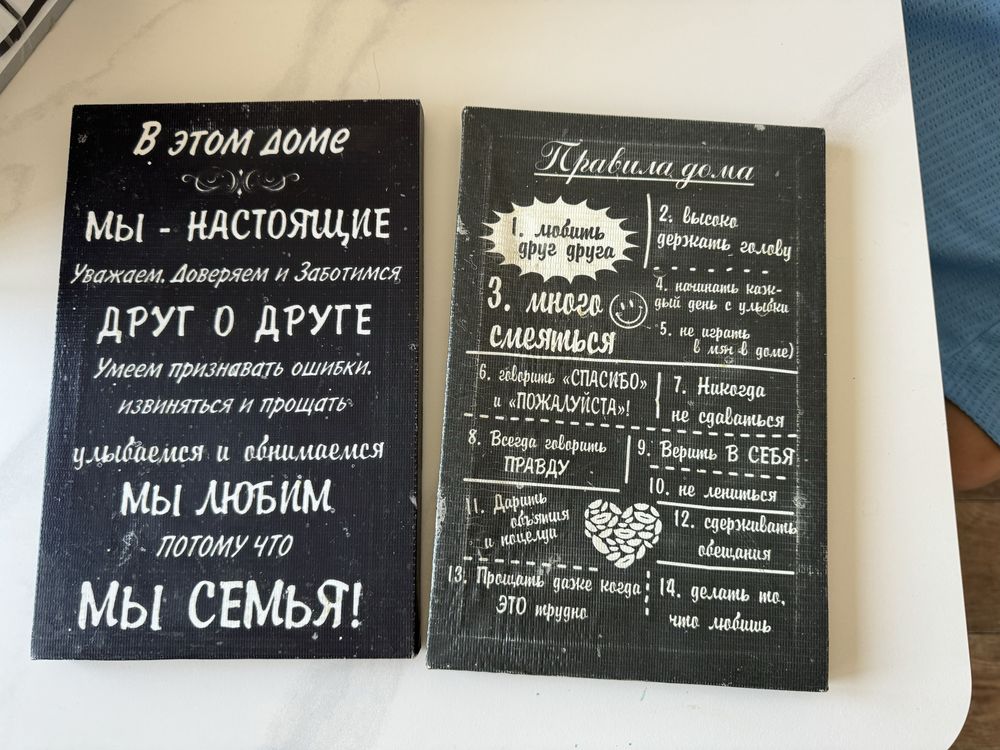 В этом доме
Мы - НАСТОЯЩИЕ
Уважаем. Доверяем и Заботимся
ДРУГ О ДРУГЕ
Умеем признавать ошибки.
извиняться и прощать
улыбаемся и обнимаемся
Мы ЛЮБИМ
ПОТОМУ ЧТО
Мы СЕМЬЯ!
Правила дома
1. любить
друг друга
2. высоко
держать голову
3. много
смеяться
4. начинать каж-
дый день с улыбки
5. не играть
в мяч в доме)
6. говорить «СПАСИБО»
и «ПОЖАЛУЙСТА»!
7. Никогда
не сдаваться
8. Всегда говорить
ПРАВДУ
9. Верить В СЕБЯ
10. не лениться
11. Дарить
объятия
и поцелуи
12. сдерживать
обещания
13. Прощать даже когда
ЭТО трудно
14. делать то,
что любишь